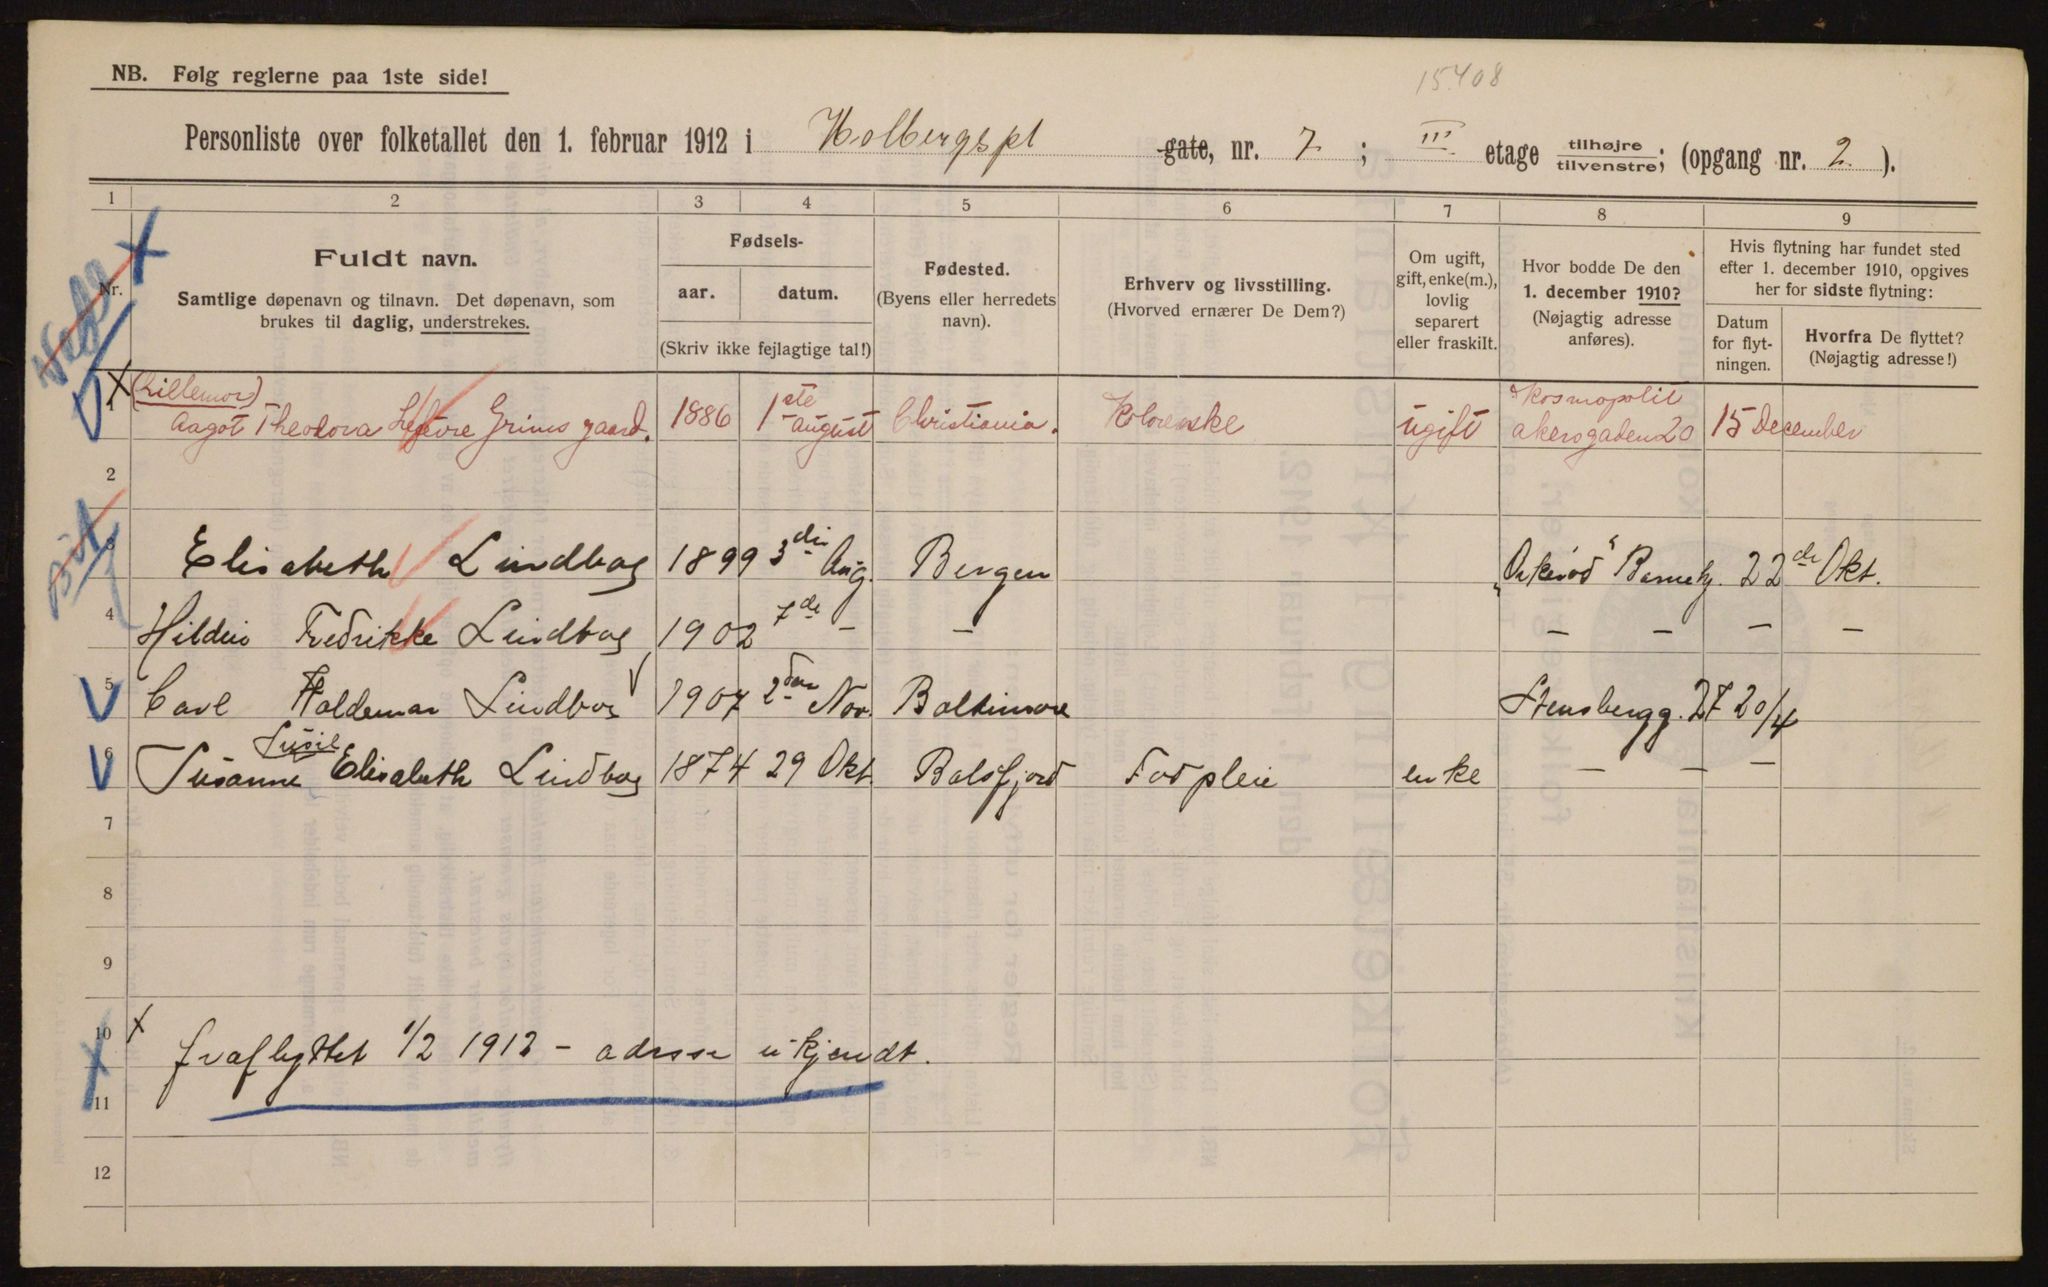 15408
NB. Følg reglerne paa 1ste side!
Personliste over folketallet den 1. februar 1912 i Holbergspl gate, nr. 7 ; III etage tilhøjre tilvenstre; (opgang nr. 2 ).
1 2 3 4 5 6 7 8 9
Nr.
Fuldt navn.
Samtlige døpenavn og tilnavn. Det døpenavn, som
brukes til daglig, understrekes.
Fødsels-
aar. datum.
(Skriv ikke fejlagtige tal!)
Fødested.
(Byens eller herredets
navn).
Erhverv og livsstilling.
(Hvorved ernærer De Dem?)
Om ugift,
gift, enke(m.),
lovlig
separert
eller fraskilt.
Hvor bodde De den
1. december 1910?
(Nøjagtig adresse
anføres).
Hvis flytning har fundet sted
efter 1. december 1910, opgives
her for sidste flytning:
Datum
for flyt-
ningen.
Hvorfra De flyttet?
(Nøjagtig adresse!)
(Lillemor)
1 Aagot Theodora Lefevre Grimsgaard. 1886 1ste august Christiania. ugift Kosmopolit akersgaden 20 15 December
2
3 Elisabeth Lindbag 1899 3die Aug. Bergen Barnehj. 22de Okt.
4 Fredrikke Lindbag 1902 7de — — — — — —
5 Carl Haldemar Lindbag 1907 2den Nov. Baltimore Stensbergg. 27 20/4
6 Susanne Elisabeth Lindbag 1874 29 Okt. Balsfjord Fodpleie enke — — —
7
8
9
10 x fraflyttet 1/2 1912 – adresse ukjendt.
11
12